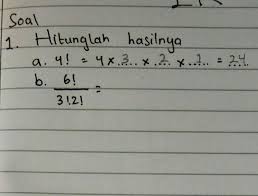 Soal
1. Hitunglah hasilnya
a. 4! = 4 x .3.. x .2.. x .1.. = 24
b. 6!
3!2! =